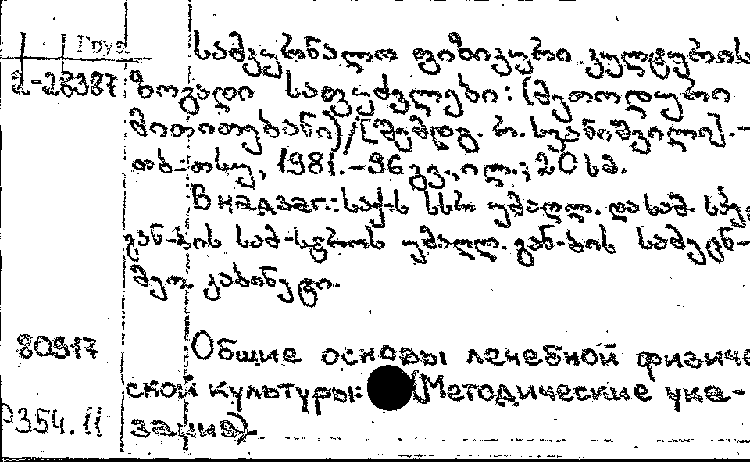 Груз
სამკურნალო ფიზიკური კულტურის
2-28387 ზოგადი საფუძვლები: (მეთოდური
მითითებანი)/[შემდგ. ნ. სვანიშვილი].–
თბ.: თსუ, 1981.–96 გვ., ილ.; 20 სმ.
В надзаг.: საქ-ს სსრ უმაღლ. და საშ. სპეც.
გან-ბის სამ-სტროს უმაღლ. გან-ბის სამეცნ-
მეთ. კაბინეტი.
80917 Общие основы лечебной физиче
ской культуры: (Методические ука-
354.11 зация).